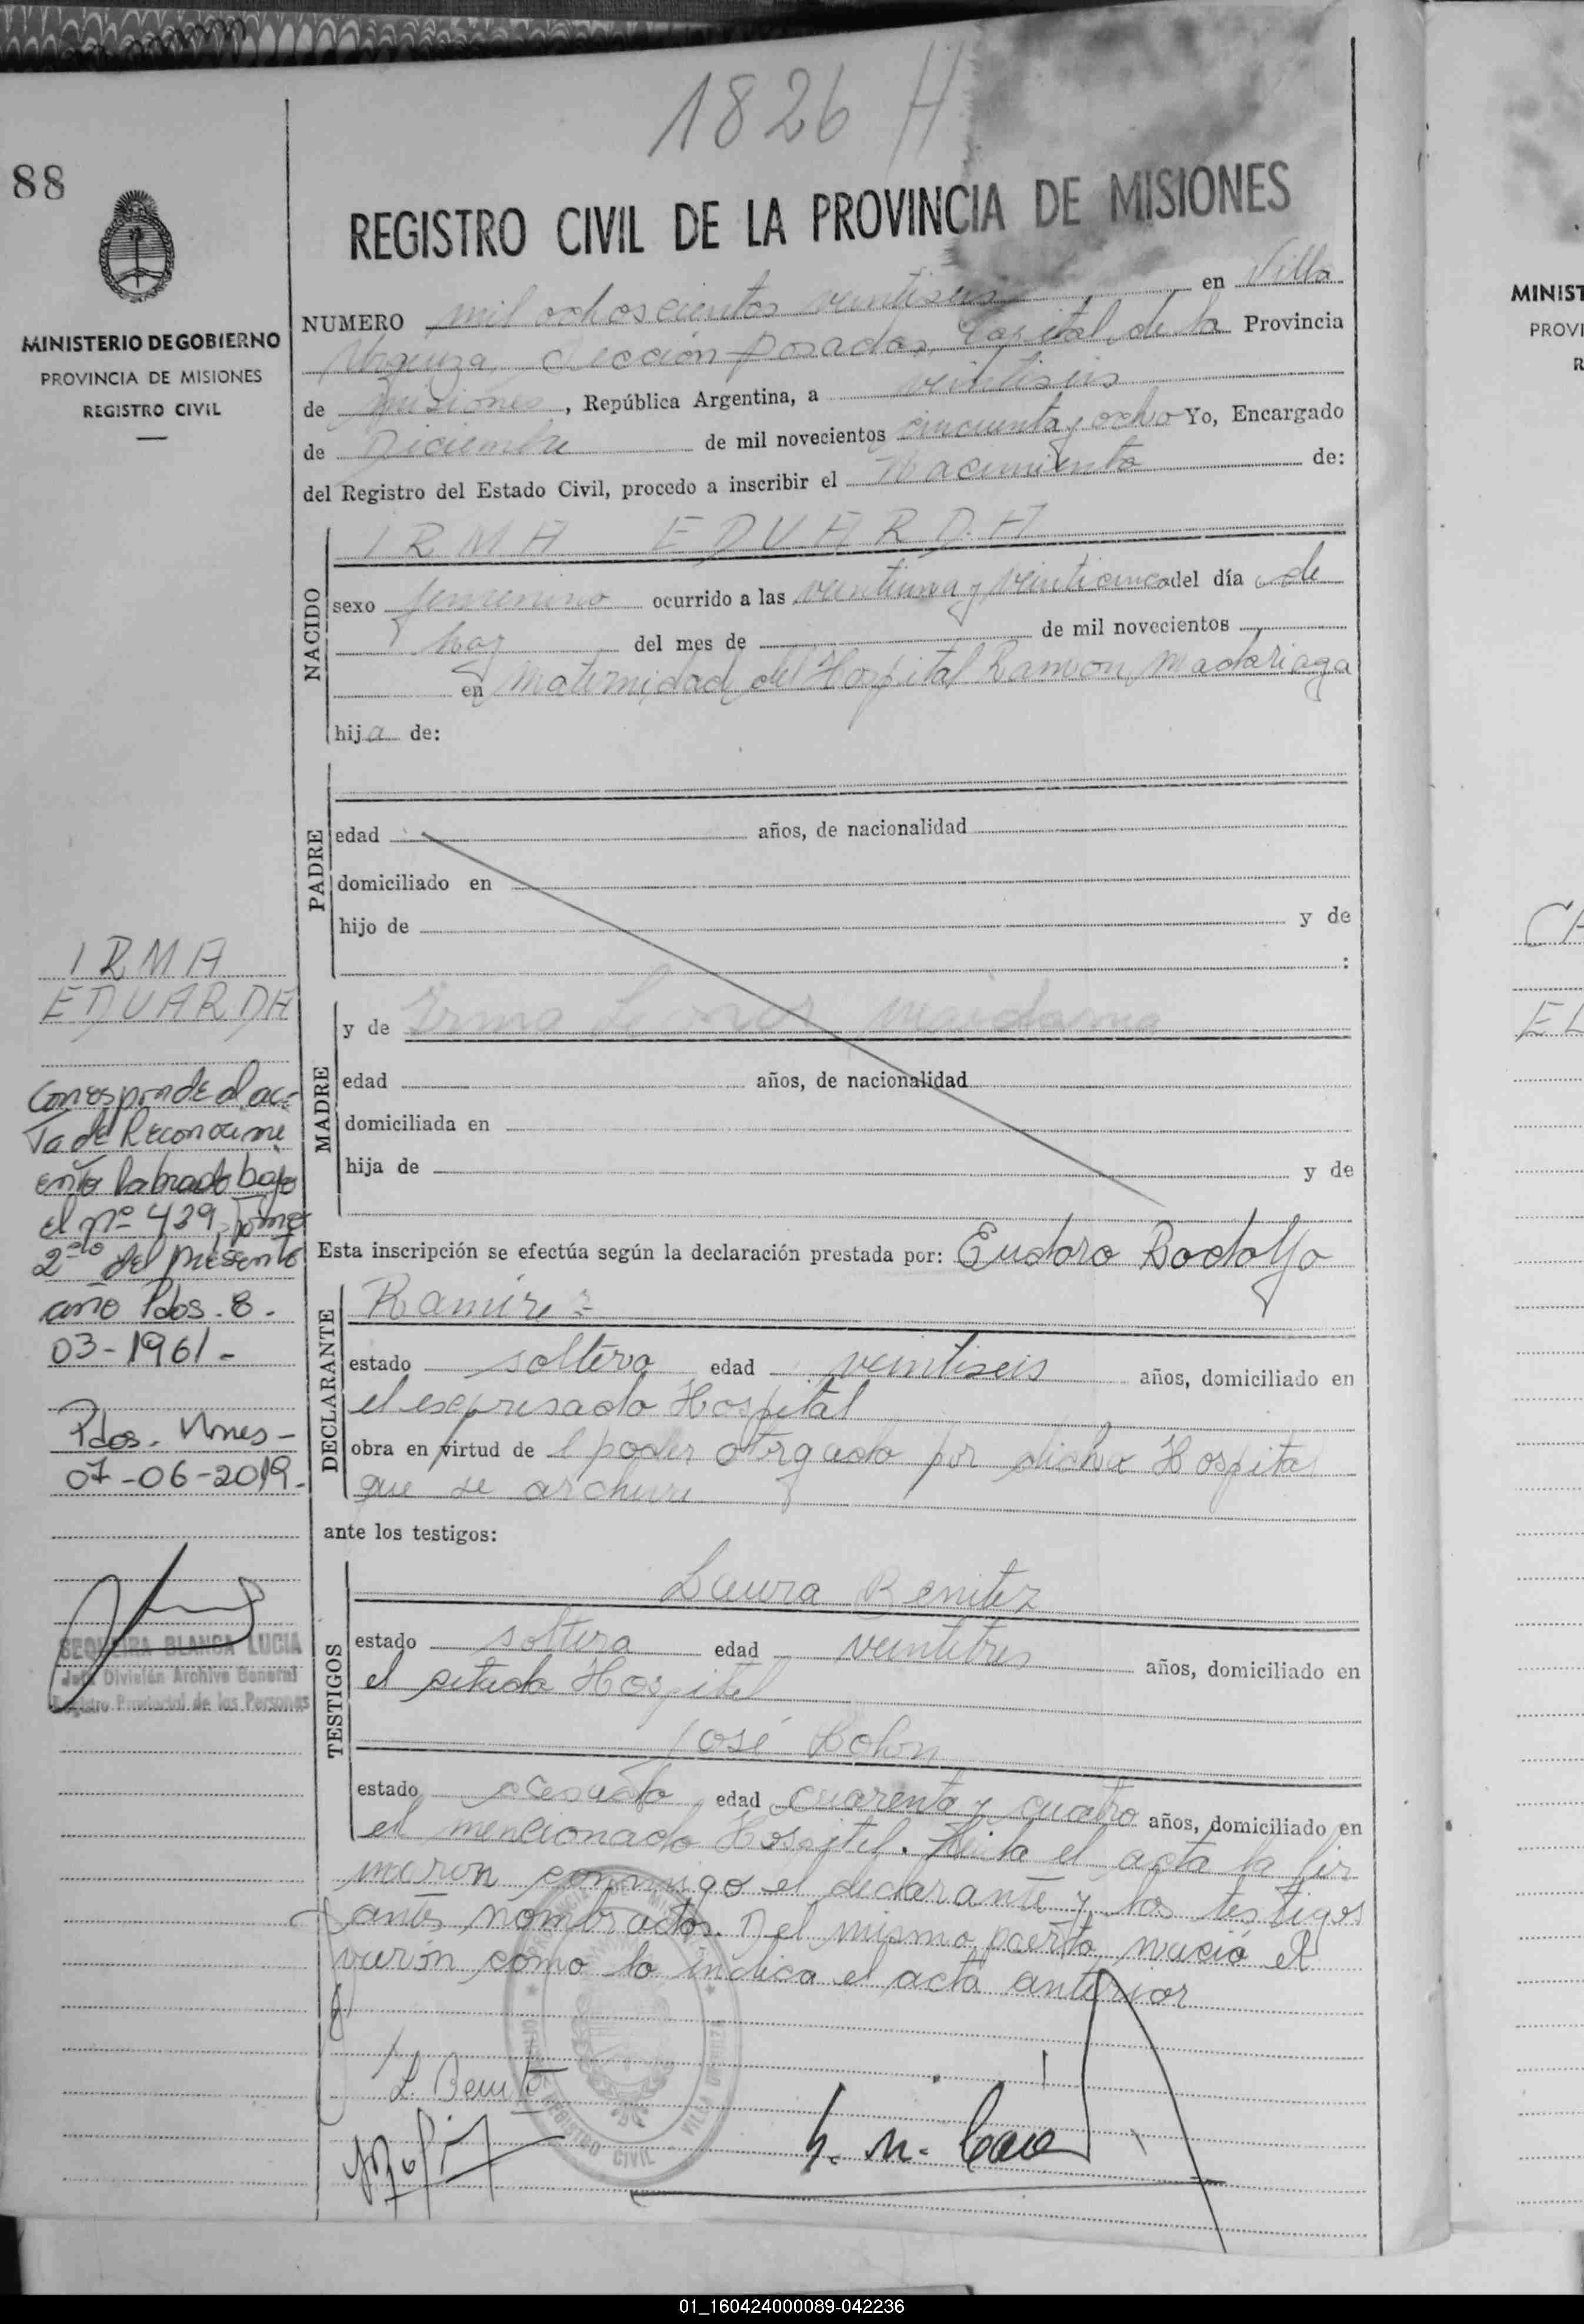 1826 H
88
REGISTRO CIVIL DE LA PROVINCIA DE MISIONES
MINISTERIO DE GOBIERNO
PROVINCIA DE MISIONES
REGISTRO CIVIL
NUMERO mil ochoscientos veintiseis en Villa
Urquiza, Sección Posadas, Capital de la Provincia
de Misiones, República Argentina, a veintiseis
de Diciembre de mil novecientos cincuenta y ocho Yo, Encargado
del Registro del Estado Civil, procedo a inscribir el Nacimiento de:
NACIDO
IRMA EDUARDA
sexo femenino ocurrido a las veintiuna y veinticinco del día de
hoy del mes de de mil novecientos
en Maternidad del Hospital Ramon Madariaga
hija de:
PADRE
edad años, de nacionalidad
domiciliado en
hijo de y de
:
MADRE
y de Irma
edad años, de nacionalidad
domiciliada en
hija de y de
Esta inscripción se efectúa según la declaración prestada por: Eudoro Rodolfo
DECLARANTE
Ramirez
estado soltero edad veintiseis años, domiciliado en
el expresado Hospital
obra en virtud del poder otrgado por dicho Hospital
que se archiva
ante los testigos:
TESTIGOS
Laura Benitez
estado soltera edad veintitres años, domiciliado en
el citado Hospital
José
estado casado edad cuarenta y cuatro años, domiciliado en
el mencionado Hospital. Leida el acta la fir
maron conmigo el declarante y los testigos
antes nombrados. Del mismo parto nació el
varón como lo indica el acta anterior
L. Benitez
REGISTRO CIVIL
IRMA
EDUARDA
Corresponde al ac-
ta de Reconocimi
ento labrado bajo
el nº 439, Tomo
2do del presente
año Pdos. 8.
03-1961-
Pdos. Mnes-
07-06-2019.
SEQUEIRA BLANCA LUCIA
Jefe División Archivo General
Registro Provincial de las Personas
MINIST
PROVI
R
CA
EL
01_160424000089-042236